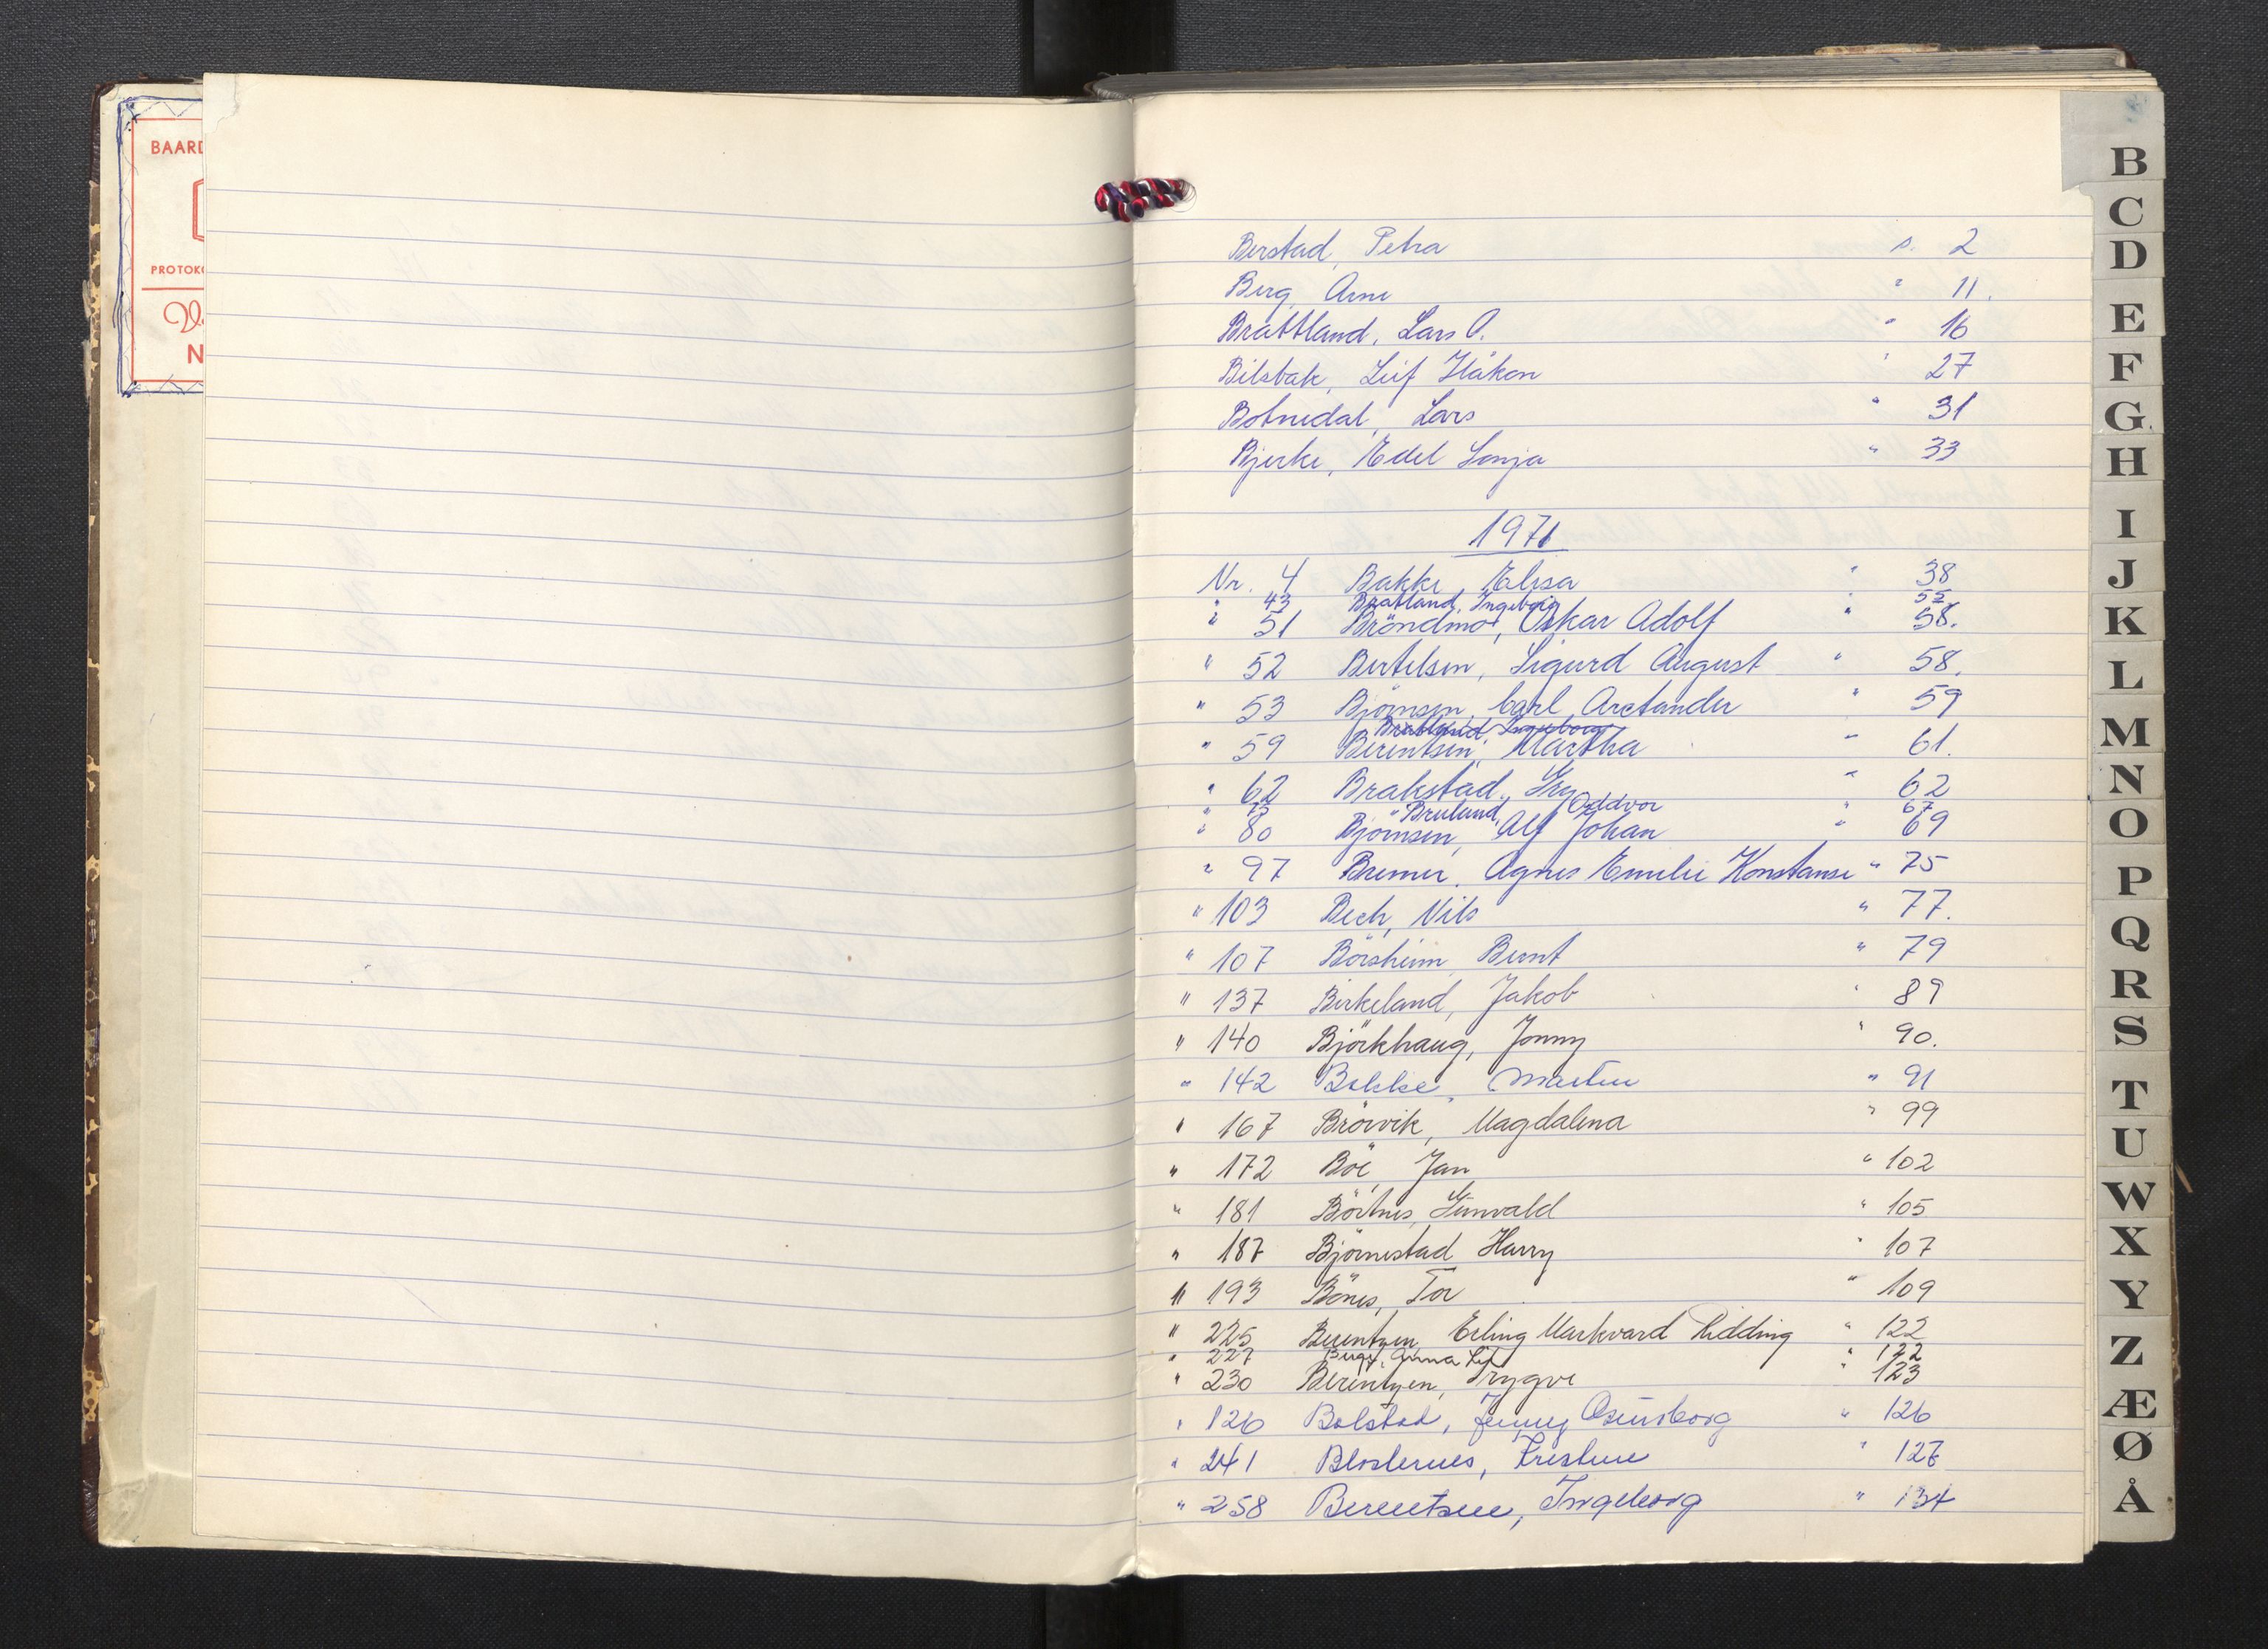 BAARD
PROTOKO
N
Berstad, Petra s. 2
Berg, Arne " 11.
Brattland, Lars O. " 16
Bilsbak, Leif Håkon " 27
Botnedal, Lars " 31
Bjerke, Edel Sonja " 33
1971
Nr. 4 Bakke, Elisa " 38
" 43 Bratland, Ingeborg " 55
" 51 Bröndmo, Oskar Adolf " 58.
" 52 Bertelsen, Sigurd August " 58.
" 53 Björnsen, Carl Arctander " 59
Bratland Ingeborg
" 59 Berentsen, Martha " 61.
" 62 Brakstad, Gry " 62
" 73 Bruland, Oddvor " 67
" 80 Björnsen, Alf Johan " 69
" 97 Bremer, Agnes Emilie Konstanse " 75
" 103 Bech, Nils " 77.
" 107 Börsheim Bernt " 79
" 137 Birkeland, Jakob " 89
" 140 Björkhaug, Jonny " 90.
" 142 Bakke, Martin " 91
" 167 Brövik, Magdalena " 99
" 172 Böe, Jan " 102
" 181 Börtnes, Gunvald " 105
" 187 Björnestad Harry " 107
" 193 Bönes, Tor " 109
" 225 Berentzen, Erling Markvard Ridding " 122
" 227 Berge, Anna " 122
" 230 Berentzen, Trygve " 123
" 126 Bolstad, Jenny " 126
" 241 " 127
" 258 Berentsen, Ingeborg " 134
B
C
D
E
F
G
H
I
J
K
L
M
N
O
P
Q
R
S
T
U
W
X
Y
Z
Æ
Ø
Å